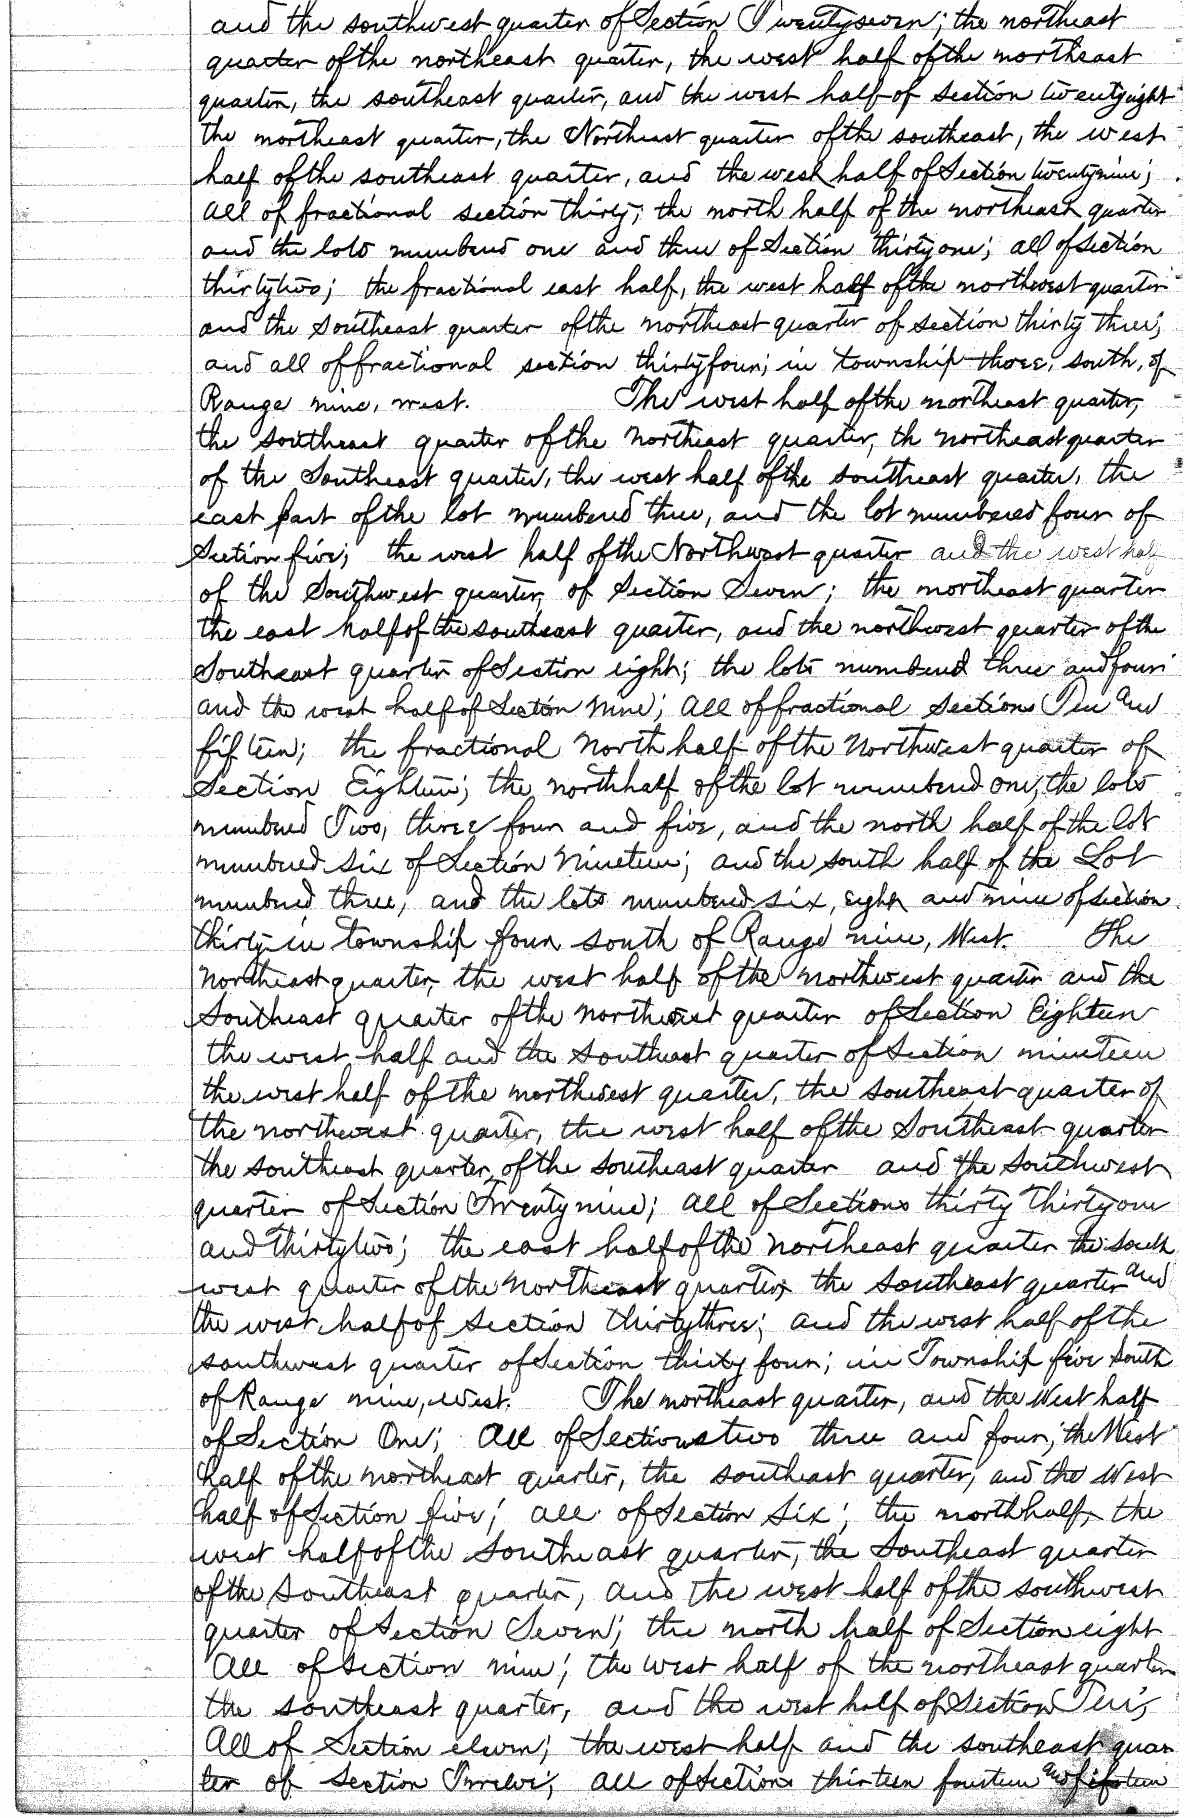 and the southwest quarter of Section Twentyseven; the northeast
quarter of the northeast quarter, the west half of the northeast
quarter, the southeast quarter, and the west half of section twentyeight
the northeast quarter, the Northeast quarter of the southeast, the west
half of the southeast quarter, and the west half of Section twentynine;
all of fractional section thirty; the north half of the northeast quarter
and the lots numbered one and three of Section thirtyone; all of section
thirtytwo; the fractional east half, the west half of the northwest quarter
and the southeast quarter of the northeast quarter of section thirty three;
and all of fractional section thirtyfour; in township three, south, of
Range nine, west. The west half of the northeast quarter,
the southeast quarter of the northeast quarter, th northeast quarter
of the Southeast quarter, the west half of the southeast quarter, the
east part of the lot numbered three, and the lot numbered four of
Section five; the west half of the Northwest quarter and the west half
of the Southwest quarter, of Section Seven; the northeast quarter
the east half of the southeast quarter, and the northwest quarter of the
Southeast quarter of Section eight; the lots numbered three and four
and the west half of Section Nine; all of fractional sections Ten and
fifteen; the fractional North half of the Northwest quarter of
Section Eighteen; the north half of the lot numbered one, the lots
numbered Two, three four and five, and the north half of the lot
numbered six of Section Nineteen; and the south half of the Lot
numbered three, and the lots numbered six, eight and nine of section
thirty in township four south of Range nine, West. The
Northeast quarter, the west half of the northwest quarter and the
Southeast quarter of the northwest quarter of Section Eighteen
the west half and the southeast quarter of Section nineteen
the west half of the northwest quarter, the southeast quarter of
the northwest quarter, the west half of the Southeast quarter
the southeast quarter of the southeast quarter and the southwest
quarter of Section Twenty nine; all of Sections thirty thirtyone
and thirtytwo; the east half of the northeast quarter the south
west quarter of the northeast quarter, the southeast quarter and
the west half of section thirtythree; and the west half of the
southwest quarter of Section thirty four; in Township five South
of Range nine, west. The northeast quarter, and the West half
of Section One; all of Sections two three and four; the West
half of the northeast quarter, the southeast quarter, and the West
half of Section five; all of Section Six; the north half, the
west half of the Southeast quarter, the Southeast quarter
of the Southeast quarter, and the west half of the southwest
quarter of Section Seven; the north half of Section eight
all of section nine; the west half of the northeast quarter
the southeast quarter, and the west half of Section Ten;
all of Section eleven; the west half and the southeast quar
ter of Section Twelve; all of sections thirteen fourteen and fifteen